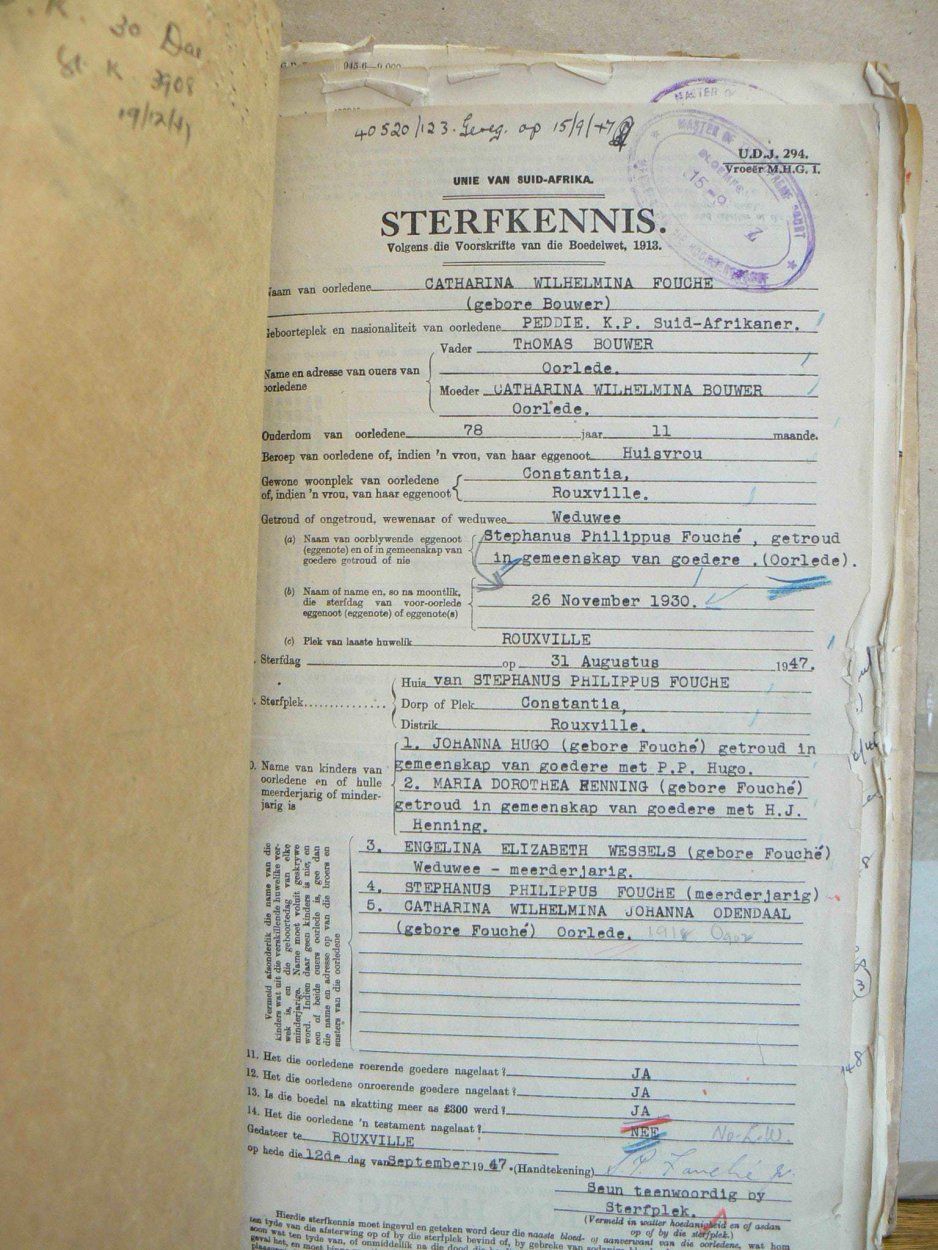 30
3908
19/12/
945-6—9,000
40520/123. Gereg. op 15/9/47
MASTER OF
MASTER OF SUPREME COURT
15-9
U.D.J. 294.
Vroeër M.H.G. 1.
UNIE VAN SUID-AFRIKA.
STERFKENNIS.
Volgens die Voorskrifte van die Boedelwet, 1913.
Naam van oorledene CATHARINA WILHELMINA FOUCHE
(gebore Bouwer)
Geboorteplek en nasionaliteit van oorledene PEDDIE. K.P. Suid-Afrikaner.
Vader THOMAS BOUWER
Name en adresse van ouers van oorledene
Oorlede.
Moeder CATHARINA WILHELMINA BOUWER
Oorlede.
Ouderdom van oorledene 78 jaar 11 maande.
Beroep van oorledene of, indien 'n vrou, van haar eggenoot Huisvrou
Gewone woonplek van oorledene Constantia,
of, indien 'n vrou, van haar eggenoot Rouxville.
Getroud of ongetroud, wewenaar of weduwee Weduwee
(a) Naam van oorblywende eggenoot Stephanus Philippus Fouché , getroud
(eggenote) en of in gemeenskap van
goedere getroud of nie in gemeenskap van goedere .(Oorlede).
(b) Naam of name en, so na moontlik,
die sterfdag van voor-oorlede 26 November 1930.
eggenoot (eggenote) of eggenote(s)
(c) Plek van laaste huwelik ROUXVILLE
. Sterfdag op 31 Augustus 1947.
Huis van STEPHANUS PHILIPPUS FOUCHE
. Sterfplek Dorp of Plek Constantia,
Distrik Rouxville.
1. JOHANNA HUGO (gebore Fouché) getroud in
0. Name van kinders van gemeenskap van goedere met P.P. Hugo.
oorledene en of hulle 2. MARIA DOROTHEA HENNING (gebore Fouché)
meerderjarig of minder- getroud in gemeenskap van goedere met H.J.
jarig is Henning.
Vermeld afsonderlik die name van die
kinders wat uit die verskillende huwelike ver-
wek is, en die geboortedag van elke
minderjarige. Name moet voluit geskrywe
word. Indien daar geen kinders is nie, en
een of beide ouers oorlede is, gee dan
die name en adresse op van die broers en
susters van die oorledene
3. ENGELINA ELIZABETH WESSELS (gebore Fouché)
Weduwee - meerderjarig.
4. STEPHANUS PHILIPPUS FOUCHE (meerderjarig)
5. CATHARINA WILHELMINA JOHANNA ODENDAAL
(gebore Fouché) Oorlede. 1918
11. Het die oorledene roerende goedere nagelaat? JA
12. Het die oorledene onroerende goedere nagelaat? JA
13. Is die boedel na skatting meer as £300 werd? JA
14. Het die oorledene 'n testament nagelaat? NEE
Gedateer te ROUXVILLE
op hede die 12de dag van September 1947. (Handtekening) S.P. Fouché jr.
Seun teenwoordig by
Sterfplek.
(Vermeld in watter hoedanigheid en of asdan
op of by die sterfplek.)
Hierdie sterfkennis moet ingevul en geteken word deur die naaste bloed- of aanverwant van die oorledene, wat
ten tyde van die afsterwing op of by die sterfplek bevind of, by gebreke van